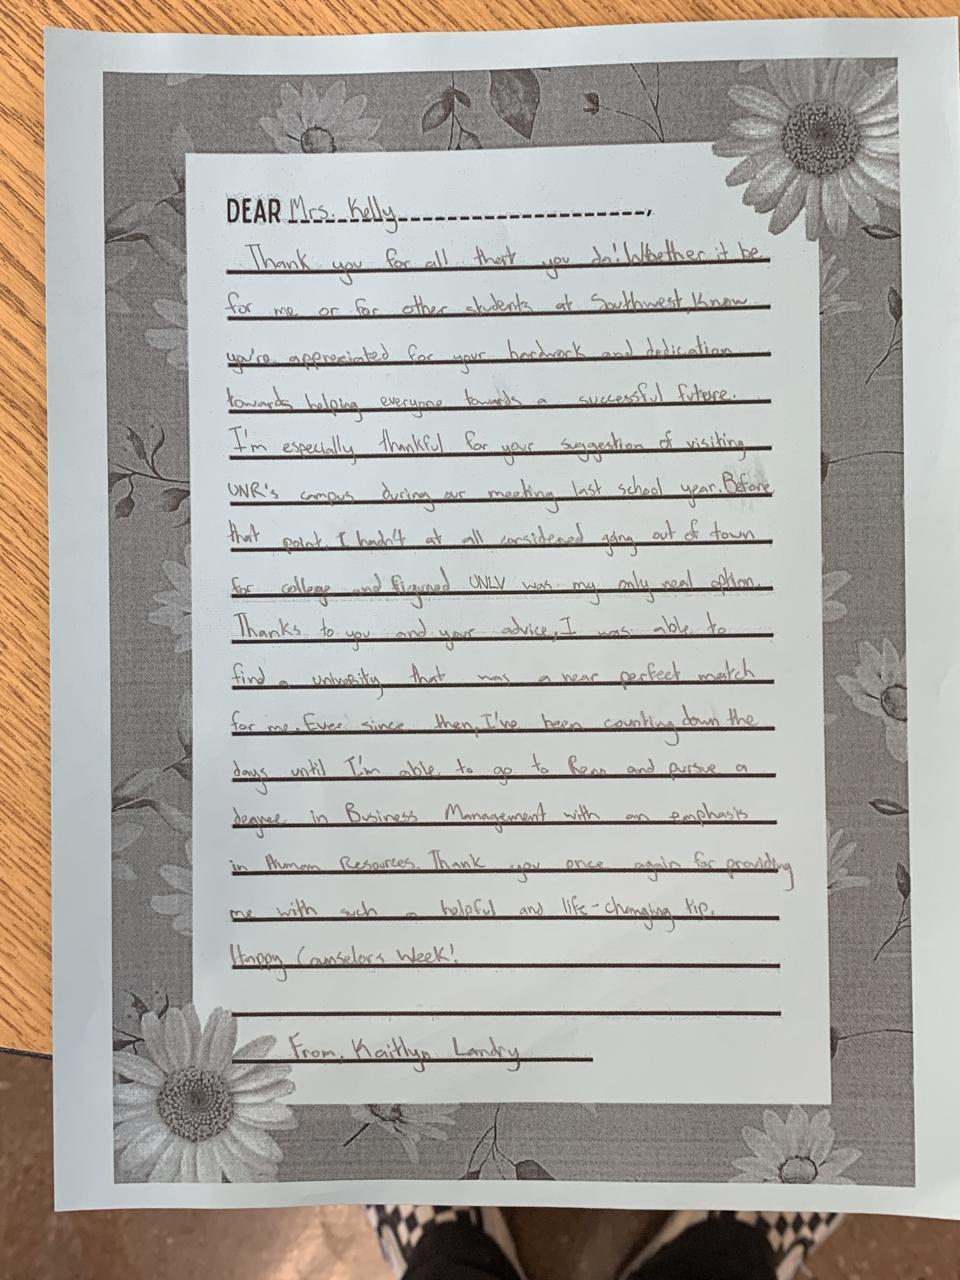 DEAR Mrs. Kelly,
Thank you for all that you do! Whether it be
for me or for other students at Southwest, Know
you're appreciated for your hardwork and dedication
towards helping everyone towards a successful future.
I'm especially thankful for your suggestion of visiting
UNR's campus during our meeting last school year. Before
that point, I hadn't at all considered going out of town
for college and figured UNLV was my only real option.
Thanks to you and your advice, I was able to
find a university that was a near perfect match
for me. Ever since then, I've been counting down the
days until I'm able to go to Reno and pursue a
degree in Business Management with an emphasis
in Human Resources. Thank you once again for providing
me with such a helpful and life-changing tip.
Happy Counselors Week!
From, Kaitlyn Landry